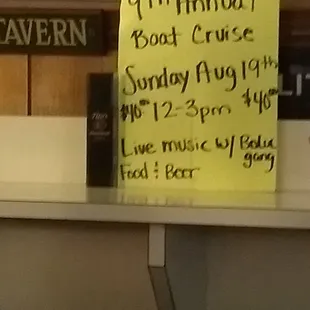 TAVERN
9th Annual
Boat Cruise
Sunday Aug 19th
$40⁰⁰ 12-3pm $40⁰⁰
Live music w/
gang
Food & Beer